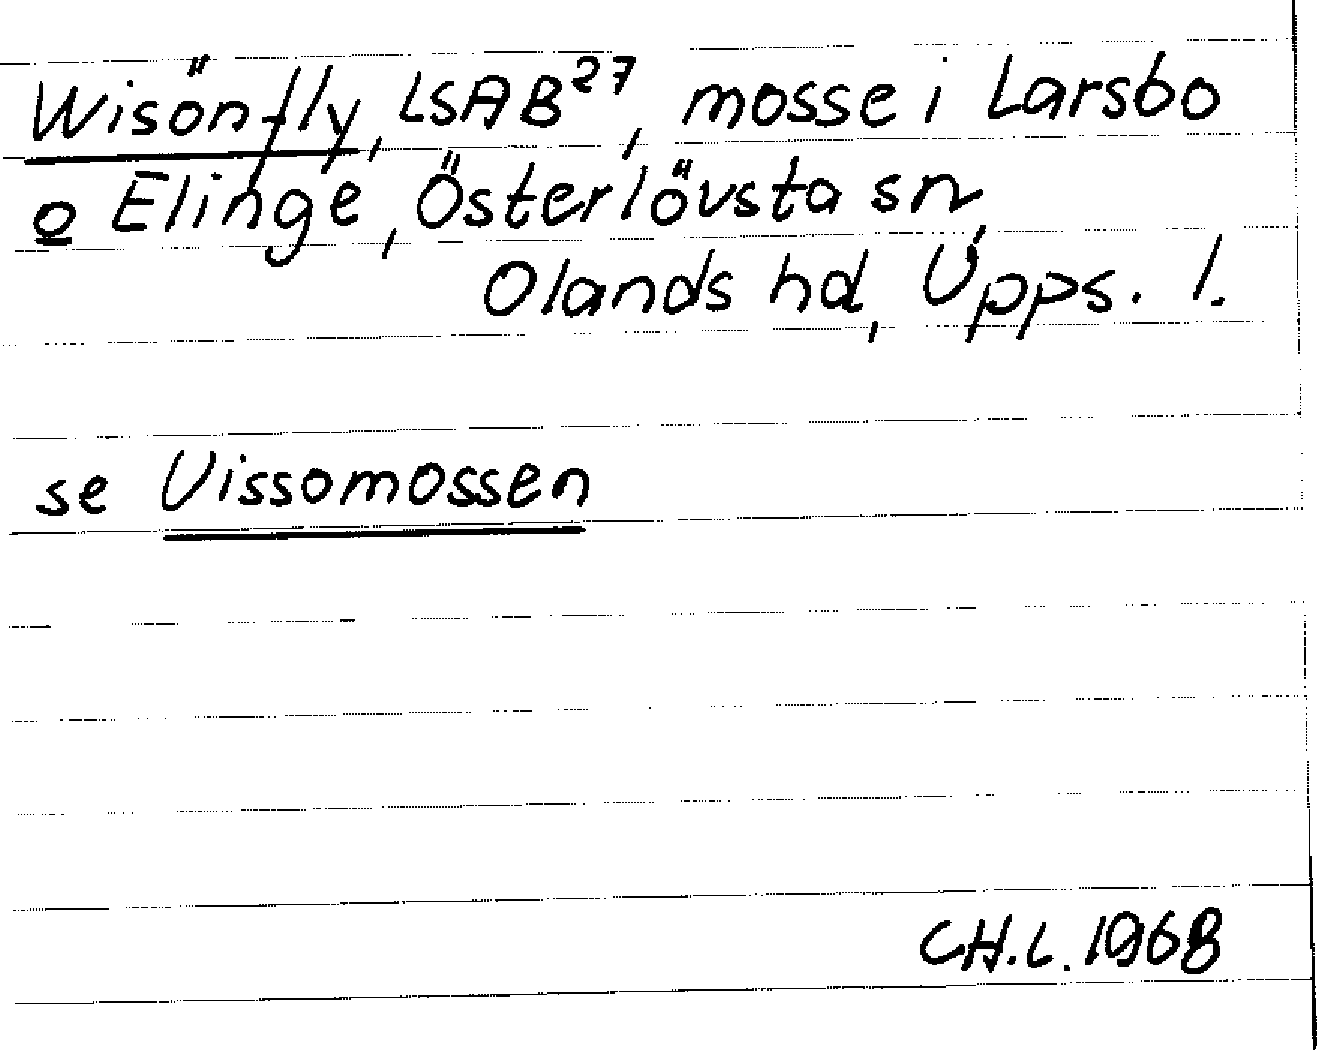 Wisönfly, LSAB27, mosse i Larsbo
o Elinge, Österlövsta sn,
Olands hd, Upps. l.
se Vissomossen
CH.L. 1968